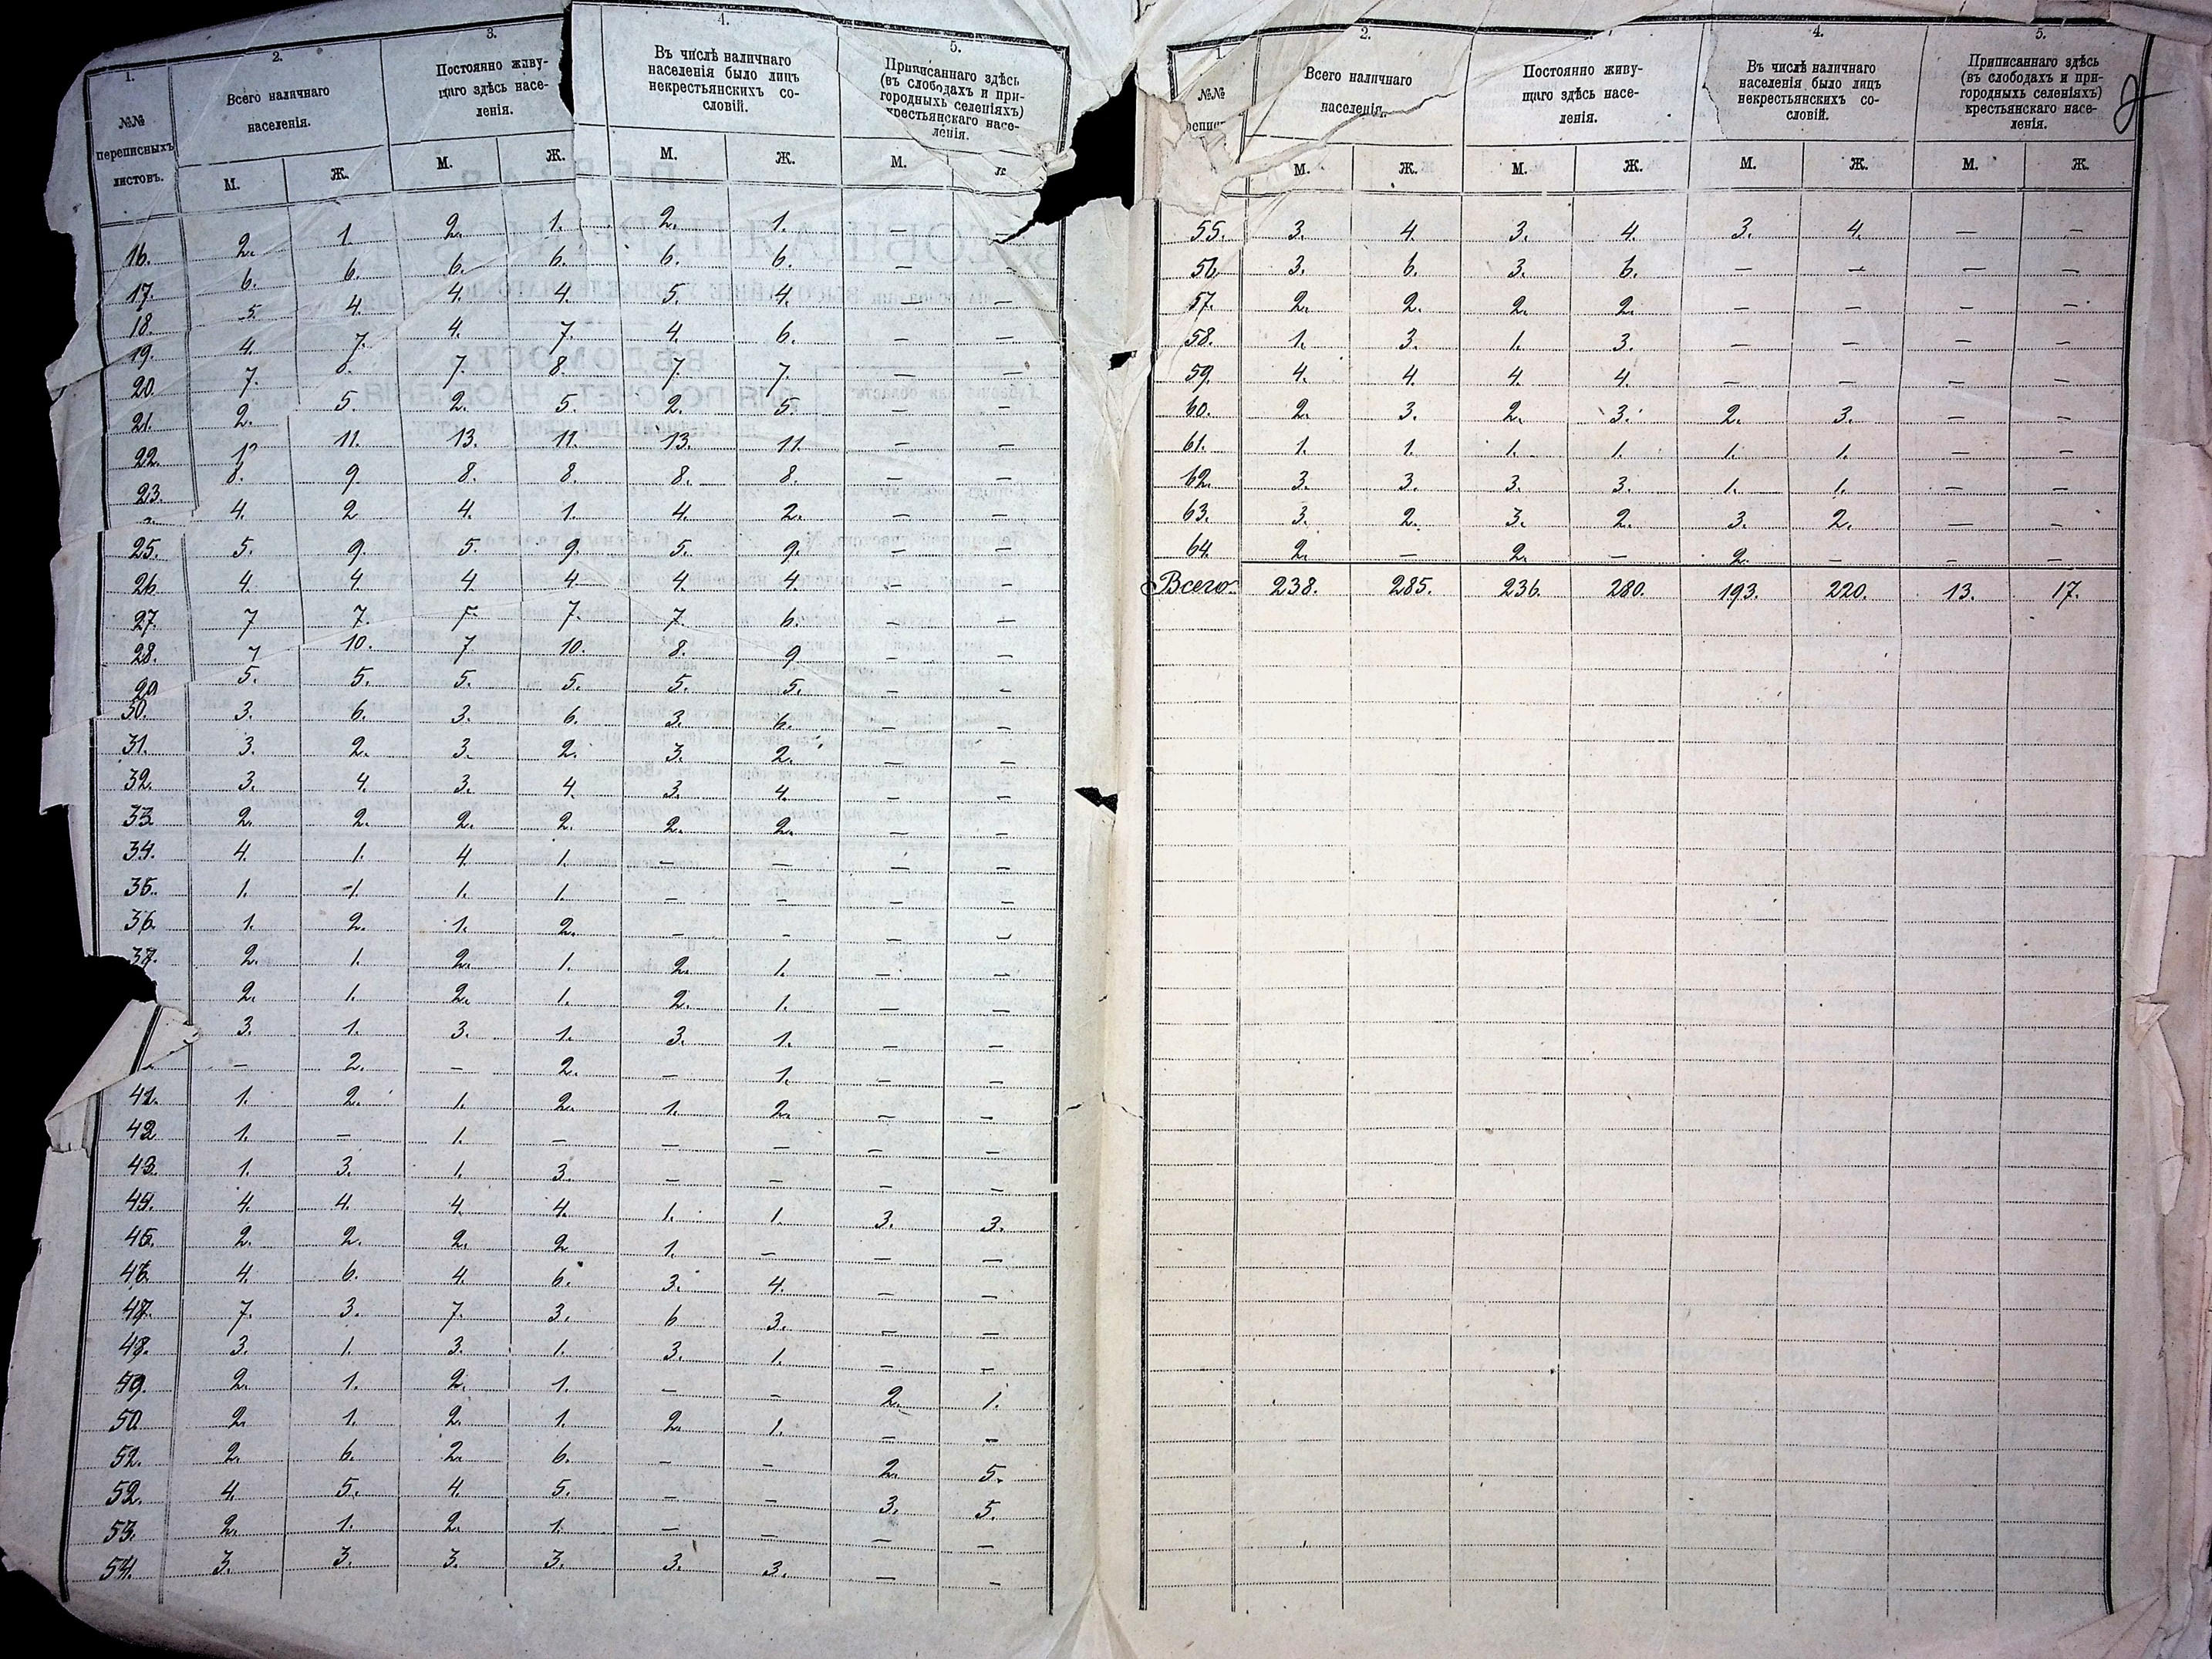 1. 2. 3. 4. 5.
№№ переписныхъ листовъ. Всего наличнаго населенія. Постоянно живущаго здѣсь населенія. Въ числѣ наличнаго населенія было лицъ некрестьянскихъ сословій. Приписаннаго здѣсь (въ слободахъ и пригородныхъ селеніяхъ) крестьянскаго населенія.
М. Ж. М. Ж. М. Ж. М.
16. 2. 1. 2. 1. 2. 1. — —
17. 6. 6. 6. 6. 6. 6. — —
18. 5. 4. 4. 4. 5. 4. — —
19. 4. 7. 4. 7. 4. 6. — —
20. 7. 8. 7. 8. 7. 7. — —
21. 2. 5. 2. 5. 2. 5. — —
22. 11. 13. 11. 13. 11. — —
23. 8. 9 8. 8. 8. 8. — —
4. 2 4. 1. 4. 2. — —
25. 5. 9. 5. 9. 5. 9. — —
26. 4. 4. 4. 4 4. 4. — —
27. 7 7. 7. 7. 6. — —
28. 7 10. 7 10. 8. 9 — —
29 5. 5. 5. 5. 5. 5. — —
30. 3. 6. 3. 6. 3. 6. — —
31. 3. 2. 3. 2. 3. 2. — —
32. 3. 4. 3. 4. 3. 4. — —
33. 2. 2. 2. 2. 2. 2. — —
34. 4. 1. 4 1. — — — —
35. 1. 1. 1. 1. — — — —
36. 1. 2. 1. 2. — — — —
37. 2. 1. 2. 1. 2. 1. — —
2. 1. 2. 1. 2. 1. — —
3. 1. 3. 1. 3. 1. — —
— 2. — 2. — 1. — —
41. 1. 2. 1. 2. 1. 2. — —
42 1. — 1. — — — — —
43. 1. 3. 1. 3. — — — —
44. 4. 4. 4. 4. 1. 1. 3. 3.
45. 2. 2. 2. 2 1. — — —
46. 4. 6. 4. 6. 3. 4. — —
47. 7. 3. 7. 3. 6 3. — —
48. 3. 1. 3. 1. 3. 1. — —
49. 2. 1. 2. 1. — — 2. 1.
50. 2. 1. 2. 1. 2. 1. — —
2. 6. 2. 6. — — 2. 5.
52. 4. 5. 4. 5. — — 3. 5.
53. 2. 1. 2. 1. — — — —
54. 3. 3. 3. 3. 3. 3. — —
1. 2. 4. 5.
№№ Всего наличнаго населенія. Постоянно живущаго здѣсь населенія. Въ числѣ наличнаго населенія было лицъ некрестьянскихъ сословій. Приписаннаго здѣсь (въ слободахъ и пригородныхъ селеніяхъ) крестьянскаго населенія.
М. Ж. М. Ж. М. Ж. М. Ж.
55. 3. 4. 3. 4. 3. 4. — —
56. 3. 6. 3. 6. — — — —
57. 2. 2. 2. 2. — — — —
58. 1. 3. 1. 3. — — — —
59. 4. 4. 4. 4. — — — —
60. 2. 3. 2. 3. 2. 3. — —
61. 1. 1. 1. 1. 1. 1. — —
62. 3. 3. 3. 3. 1. 1. — —
63. 3. 2. 3. 2. 3. 2. — —
64. 2. — 2. — 2. — — —
Всего: 238. 285. 236. 280. 193. 220. 13. 17.